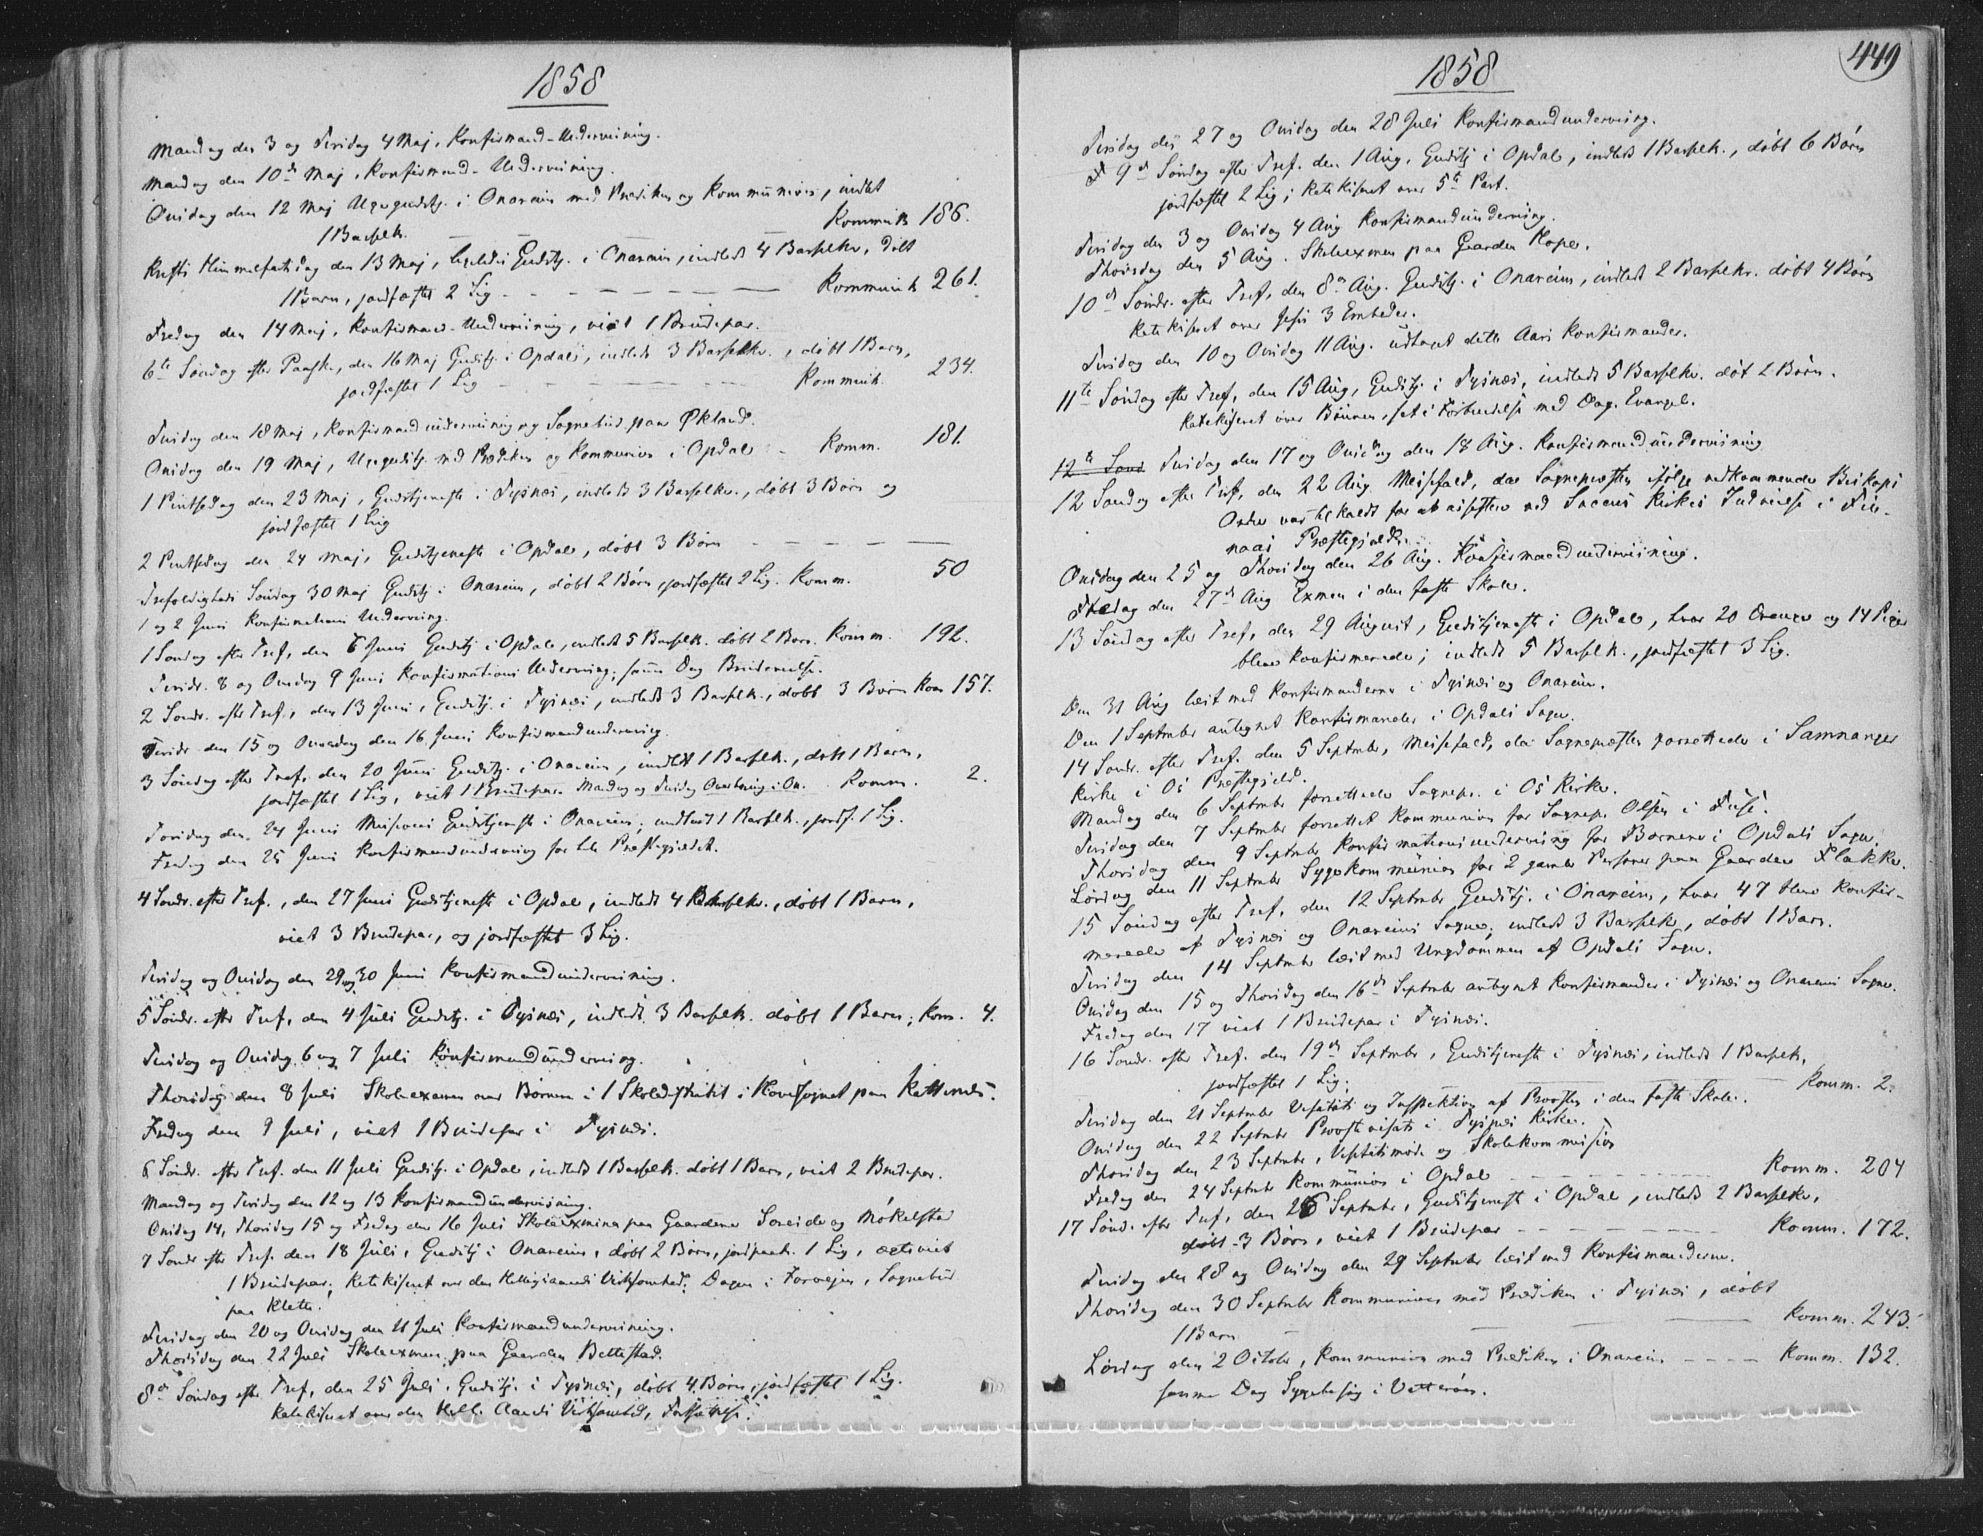 1858
Mandag den 3 og Tirsdag 4 Maj, Konfirmand-Underviisning.
Mandag den 10de Maj, Konfirmand-Underviisning.
Onsdag den 12 Maj Ugegudstj. i Onareim med Prædiken og Kommunion, indlet
1 Barselk. — — — — Kommunik 186.
Kristi Himmelfartsdag den 13 Maj, Gudstj. i Onareim, indledt 4 Barselkv., døbt
1 Barn, jordfæstet 2 Lig — — — — Kommunik 261.
Fredag den 14 Maj, Konfirmand-Underviisning, viet 1 Brudepar.
6te Søndag efter Paaske, den 16 Maj Gudstj. i Opdal, indledt 3 Barselkv., døbt 1 Barn,
jordfæstet 1 Lig — — — — Kommunik. 234.
Tirsdag den 18 Maj, Konfirmandunderviisning og Sognebud paa Økland.
Onsdag den 19 Maj, Ugegudstj. med Prædiken og Kommunion i Opdal - Komm. 181.
1 Pintsedag den 23 Maj, Gudstjeneste i Tysnæs, indledt 3 Barselkv., døbt 3 Børn og
jordfæstet 1 Lig
2 Pintsedag den 24 Maj, Gudstjeneste i Opdal, døbt 3 Børn — — — —
Trefoldigheds Søndag 30 Maj Gudstj. i Onareim, døbt 2 Børn, jordfæstet 2 Lig. Komm. 50
1 og 2 Juni Konfirmations Underviisning.
1 Søndag efter Tref, den 6 Juni Gudstj. i Opdal, indledt 5 Barselk. døbt 2 Børn. Komm. 192.
Tirsd. 8 og Onsdag 9 Juni Konfirmations Underviisng; samme Dag Brudevielse.
2 Sønd. efter Tref., den 13 Juni, Gudstj. i Tysnæs, indledt 3 Barselk., døbt 3 Børn Kom 157.
Tirsd. den 15 og Onsdag den 16 Juni Konfirmandunderviisng.
3 Søndag efter Tref, den 20 Juni Gudstj. i Onareim, indledt 1 Barselk., døbt 1 Barn,
jordfæstet 1 Lig, viet 1 Brudepar. Mandag og Tirsdag i On. Komm. 2.
Torsdag den 24 Juni Missions Gudstjeneste i Onareim; indledt 1 Barselk., jordf. 1 Lig.
Fredag den 25 Juni Konfirmandunderviisning for hele Præstegjældet.
4 Sønd. efter Tref., den 27 Juni Gudstjeneste i Opdal, indledt 4 Barselkv., døbt 1 Barn,
viet 3 Brudepar, og jordfæstet 3 Lig.
Tirsdag og Onsdag den 29 og 30 Juni Konfirmandunderviisning.
5 Sønd. efter Tref, den 4 Juli Gudstj. i Tysnæs, indledt 3 Barselk. døbt 1 Barn; Kom. 4.
Tirsdag og Onsdag 6 og 7 Juli Konfirmandunderviisng.
Thorsdag den 8 Juli Skoleexamen over Børnene i 1 Skoledistrikt i Hovedsognet paa Hattenæs.
Fredag den 9 Juli, viet 1 Brudepar i Tysnæs.
6 Sønd. efter Tref. den 11 Juli Gudstj. i Opdal, indledt 1 Barselk. døbt 1 Barn, viet 2 Brudepar.
Mandag og Tirsdag den 12 og 13 Konfirmandunderviisning.
Onsdag 14, Thorsdag 15 og Fredag den 16 Juli Skoleexamina paa Gaardene Soreide og Møkelstad
7 Sønd efter Tref. den 18 Juli, Gudstj i Onareim, døbt 2 Børn, jordpaak. 1 Lig, ægteviet
1 Brudepar; Katekiseret over den Helligaands Virksomhed; Dagen i Forveien, Sognebud
paa Klette.
Tirsdag den 20 og Onsdag den 21 Juli Konfirmandunderviisning.
Thorsdag den 22 Juli Skoleexamen paa Gaarden Bellestad.
8de Søndag efter Tref, den 25 Juli, Gudstj. i Tysnæs, døbt 4 Børn, jordfæstet 1 Lig.
Katekiseret over den Hell. Aands Virksomhed, Fortsættelse.
449
1858
Tirsdag den 27 og Onsdag den 28 Juli Konfirmandunderviisng.
9de Søndag efter Tref. den 1 Aug. Gudstj i Opdal, indledt 1 Barselk., døbt 6 Børn
jordfæstet 2 Lig; Katekiseret over 5te Part.
Tirsdag den 3 og Onsdag 4 Aug Konfirmandunderviisng.
Thorsdag den 5 Aug. Skoleexamen paa Gaarden Kope.
10de Søndr. efter Tref, den 8de Aug. Gudstj. i Onareim, indledt 2 Barselkv. døbt 4 Børn
Katekiseret over Jesu 3 Embeder.
Tirsdag den 10 og Onsdag 11 Aug. udtaget dette Aars Konfirmander.
11te Søndag efter Tref, den 15 Aug, Gudstj. i Tysnæs, indledt 5 Barselkv. døbt 2 Børn.
Katekiseret over Bønnen, sat i Forbindelse med Dag. Evangel.
12te Sønd Tirsdag den 17 og Onsdag den 18 Aug. Konfirmandunderviisning
12 Søndag efter Tref, den 22 Aug Messefald, da Sognepræsten ifølge vedkommende Biskops
Ordre var tilkaldt for at assistere ved Kirkes Indvielse i Fin-
naas Præstegjæld.
Onsdag den 25 og Thorsdag den 26 Aug. Konfirmandunderviisning.
Fredag den 27de Aug Exmen i den faste Skole.
13 Søndag efter Tref, den 29 August, Gudstjeneste i Opdal, hvor 20 Drenge og 14 Piger
bleve konfirmerede; indledt 5 Barselk., jordfæstet 3 Lig.
Den 31 Aug læst med Konfirmanderne i Tysnæs og Onareim.
Den 1 September antegnet Konfirmander i Opdals Sogn.
14 Sønd. efter Tref. den 5 September, Messefald, da Sognepræsten forrettede i Samnanger
Kirke i Os Præstegjæld.
Mandag den 6 September forrettede Sognepr. i Os Kirke.
Tirsdag den 7 September forrettet Kommunion for Sognepr. Olsen i Fuse.
Thorsdag den 9 September Konfirmationsunderviisng for Børnene i Opdals Sogn.
Lørdag den 11 September Sygekommunion for 2 gamle Personer paa Gaarden Flakke.
15 Søndag efter Tref, den 12 September, Gudstj. i Onareim, hvor 47 bleve konfir-
merede af Tysnæs og Onareims Sogne; indledt 3 Barselk, døbt 1 Barn.
Tirsdag den 14 September læst med Ungdommen af Opdals Sogn.
Onsdag den 15 og Thorsdag den 16de September antegnet Konfirmander i Tysnæs og Onareims Sogne.
Fredag den 17 viet 1 Brudepar i Tysnæs.
16 Sønd. efter Tref. den 19de September, Gudstjeneste i Tysnæs, indledt 1 Barselk,
jordfæstet 1 Lig. — — — Komm. 2.
Tirsdag den 21 September Visitats og Inspektion af Provsten i den faste Skole.
Onsdag den 22 September Provstevisats i Tysnæs Kirke.
Thorsdag den 23 September, Visitatsmøde og Skolekommission
Fredag den 24 September Kommunion i Opdal — — — Komm. 204
17 Sønd. efter Tref, den 26 September, Gudstjeneste i Opdal, indledt 2 Barselkv,
døbt 3 Børn, viet 1 Brudepar — — — Komm. 172.
Tirsdag den 28 og Onsdag den 29 September læst med Konfirmanderne.
Thorsdag den 30 September Kommunion med Prædiken i Tysnæs, døbt
1 Barn — — — Komm. 243.
Lørdag den 2 October, Kommunion med Prædiken i Onareim — — — Komm. 132.
samme Dag Sygebesøg i Vetteraas.